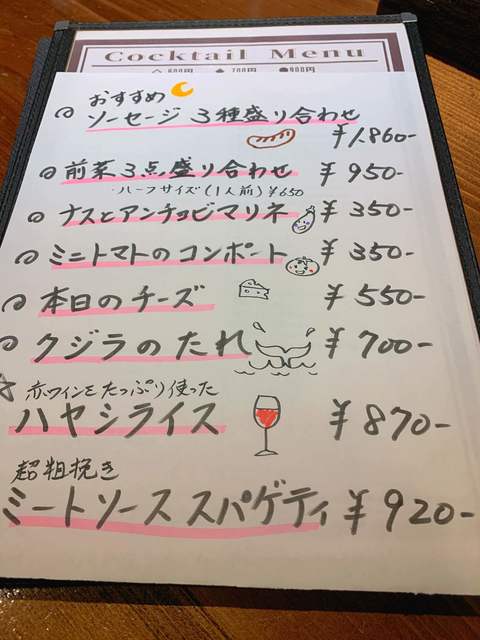 Cocktail Menu
△ 600円 ♠ 700円 ●900円
おすすめ
ソーセージ 3種盛り合わせ
¥1.860-
前菜3点盛り合わせ ¥950-
・ハーフサイズ(1人前)¥650
ナスとアンチョビマリネ ¥350-
ミニトマトのコンポート ¥350-
本日のチーズ ¥550-
クジラのたれ ¥700-
赤ワインをたっぷり使った
ハヤシライス ¥870-
超粗挽き
ミートソース スパゲティ ¥920-